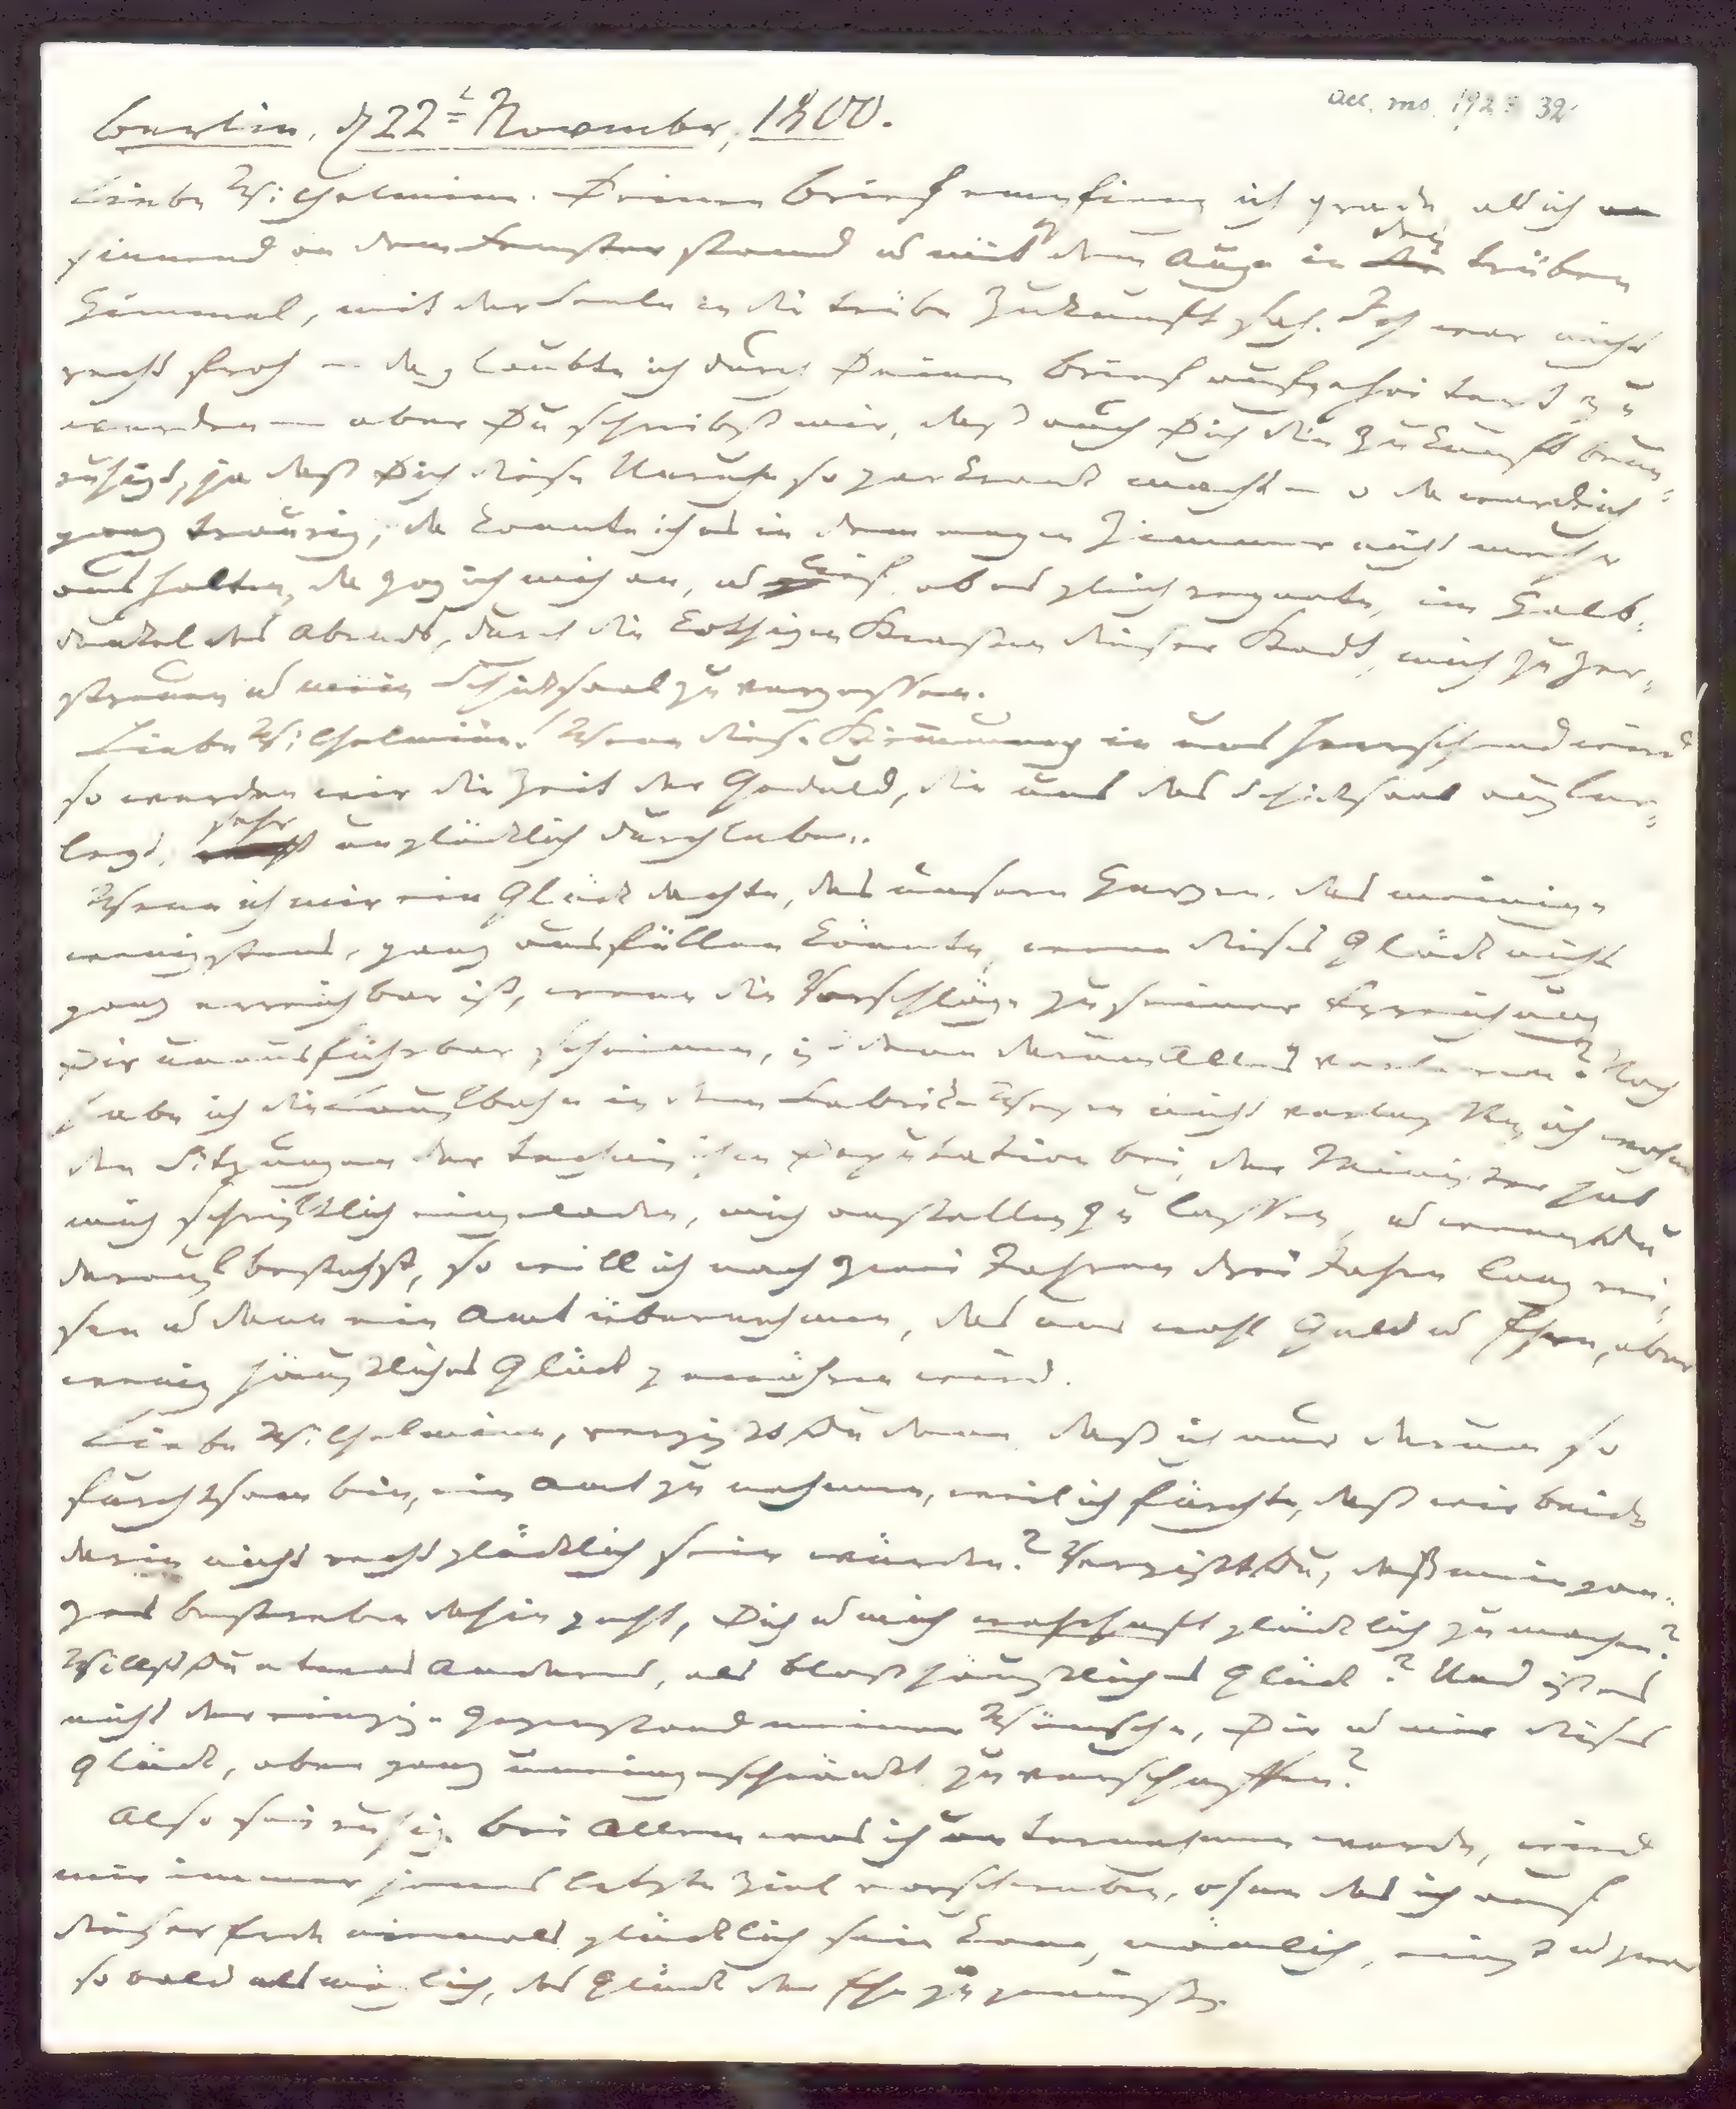 acc. ms. 192 32
Berlin, d 22t November, 1800.
Liebe Wilhelmine. Deinen Brief empfieng ich grade, als ich
sinnend an dem Fenster stand u mit dem Auge in den trüben
Himmel, mit der Seele in die trübe Zukunft sah. Ich war nicht
recht froh – da glaubte ich durch Deinen Brief aufgeheitert zu
werden – aber Du schreibst mir, daß auch Dich die Zukunft beun=
ruhigt, ja daß Dich diese Unruhe so gar krank macht – o da ward ich
ganz traurig, da konnte ich es in dem engen Zimmer nicht mehr
aushalten, da zog ich mich an, u lief, ob es gleich regnete, im Halb=
dunkel des Abends, durch die kothigen Straßen dieser Stadt, mich zu zer=
streuen u mein Schicksaal zu vergessen.
Liebe Wilhelmine! Wenn diese Stimmung in uns herrschend wird
so werden wir die Zeit der Geduld, die uns das Schicksaal auferlegt,
sehr unglücklich durchleben.
Wenn ich mir ein Glück dachte, das unsere Herzen, das meinige
wenigstens, ganz ausfüllen könnte, wenn dieses Glück nicht
ganz erreichbar ist, wenn die Vorschläge zu seiner Erreichung
Dir unausführbar scheinen, ist denn darum Alles verloren? Noch
habe ich die Laufbahn in dem Fabrikwesen nicht verlassen, ich wohne
den Sitzungen der technischen Deputation bei, der Minister hat
mich schriftlich eingeladen, mich anstellen zu lassen, u wenn Du
darauf bestehst, so will ich nach zwei Jahren drei Jahre lang rei=
sen u dann ein Amt übernehmen, das uns wohl Geld u Ehre, aber
wenig häusliches Glück gewähren wird.
Liebe Wilhelmine, vergißt Du denn, daß ich nur darum so
furchtsam bin, ein Amt zu nehmen, weil ich fürchte, daß wir beide
darin nicht recht glücklich sein würden? Vergißt Du, daß mein gan=
zes bestreben dahin geht, Dich u mich wahrhaft glücklich zu machen?
Willst Du etwas Anderes, als bloß häusliches Glück? Und ist es
nicht der einzige Gegenstand meiner Wünsche, Dir u mir dieses
Glück, aber ganz uneingeschränkt, zu verschaffen?
Also sei ruhig. Bei Allem was ich unternehmen werde, wird
mir immer jenes letzte Ziel vorschweben, ohne das ich auf
dieser Erde niemals glücklich sein kann, nämlich, einst u zwar
so bald als möglich, das Glück der Ehe zu genießen.